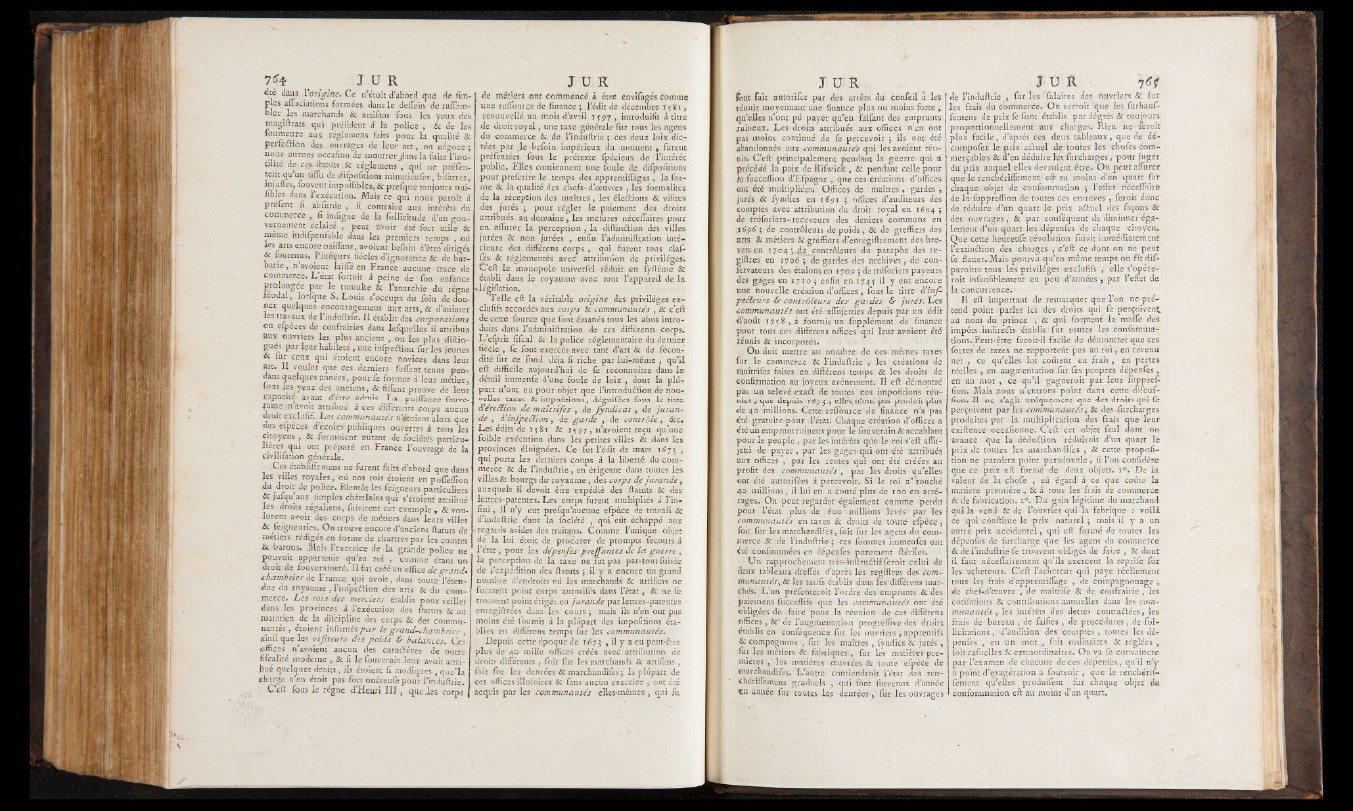 764 J U R
été dans l'origine. Ce n'étoit d'abord que de sim-
ples associations formées dans le dessein de rassem-
bler les marchands & artisans sous les yeux des
magistrats qui président à la police , & de les
soumettre aux réglemens faits pour la qualité &
perfection des ouvrages de leur art, ou négoce ;
nous aurons occasion de montrer dans la suite l'inu-
tilité de ces statuts & réglemens , qui ne présen-
tent qu'un tissu de dispositions minutieuses, bisarres,
injustes, souvent impossibles, & presque toujours nui-
sibles dans l'exécution. Mais ce qui nous paroît à
présent si absurde , si contraire aux intérêts du
commerce , si indigne de la sollicitude d'un gou-
vernement éclairé , peut avoir été fort utile &
même indispensable dans les premiers temps , où
les arts encore naissans, avoient besoin d'être dirigés
& soutenus. Plusieurs siècles d'ignorance & de bar-
barie , n'avoient laissé en France aucune trace de
commerce. L'état sortoit à peine de son enfance
prolongée par le tumulte & l'anarchie du régne
féodal, lorsque S. Louis s'occupa du soin de don-
ner quelques encouragemens aux arts, & d'animer
les travaux de l'industrie. Il établit des corporations
ou espèces de confrairies dans lesquelles il attribua
aux ouvriers les plus anciens , ou les plus distin-
gués par leur habileté, une inspection sur les jeunes
& sur ceux qui étoient encore novices dans leur
art. Il voulut que ces derniers fussent tenus pen-
dant quelques années, pour se former à leur métier,
sous les yeux des anciens, & fissent preuve de leur
capacité avant d'être admis. La puissance souve-
raine n'avoit attribué à ces différens corps aucun
droit exclusif. Les communautés n'étoient alors que
des espèces d'écoles publiques ouvertes à tous les
citoyens , & formoient autant de sociétés particu-
lières qui ont préparé en France l'ouvrage de la
civilisation générale.
Ces établissemens ne furent faits d'abord que dans
les villes royales, où nos rois étoient en possession
du droit de police. Bientôt les seigneurs particuliers
& jusqu'aux simples châtelains qui s'étoient attribué
les droits régaliens, suivirent cet exemple , & vou-
lurent avoir des corps de métiers dans leurs villes
& seigneuries. On trouve encore d'anciens statuts de
métiers rédigés en forme de chartres par les comtes
& barons. Mais l'exercice de la grande police ne
pouvoit appartenir qu'au roi , comme étant un
droit de souveraineté. Il fut créé un office de grand-
chambrier de France qui avoit, dans toute l'éten-
due du royaume , l'inspection des arts & du com-
merce. Les rois des merciers établis pour veiller
dans les provinces à l'exécution des statuts & au
maintien de la discipline des corps & des commu-
nautés , étoient institués par le grand-chambrier ,
ainsi que les visiteurs des poids & balances. Ces
offices n'avoient aucun des caractères de notre
fiscalité moderne , & si le souverain leur avoit attri-
bué quelques droits, ils étoient si modiques , que la
charge n'en étoit pas fort onéreuse pour l'industrie.
C'est sous le régne d'Henri III , que les corps
J U R
de métiers ont commencé à être envisagés comme
une ressource de finance ; l'édit de décembre 1581,
renouvellé au mois d'avril 1597 , introduisit à titre
de droit royal, une taxe générale sur tous les agens
du commerce & de l'industrie ; ces deux loix dic-
tées par le besoin impérieux du moment, furent
présentées sous le prétexte spécieux de l'intérêt
public. Elles contiennent une foule de dispositions
pour prescrire le temps des apprentissages , la for-
me & la qualité des chefs-d'œuvres , les formalités
de la réception des maîtres, les élections & visites
des jurés ; pour régler le paiement des droits
attribués au domaine, les mesures nécessaires pour
en assurer la perception, la distinction des villes
jurées & non jurées , enfin l'administration inté-
rieure des différens corps , qui furent tous clas-
sés & réglementés avec attribution de priviléges.
C'est le monopole universel réduit en systême &
établi dans le royaume avec tout l'appareil de la
législation.
Telle est la véritable origine des priviléges ex-
clusifs accordés aux corps & communautés , & c'est
de cette source que sont émanés tous les abus intro-
duits dans l'administration de ces différens corps.
L'esprit fiscal & la police réglementaire du dernier
siècle , se sont exercés avec tant d'art & de fécon-
dité sur ce fond déja si riche par lui-même , qu'il
est difficile aujourd'hui de se reconnoître dans le
détail immense d'une foule de loix , dont la plû-
part n'ont eu pour objet que l'introduction de nou-
velles taxes & impositions, déguisées sous le titre
d'érection de maîtrises , de syndicat , de juran-
de , d'inspection , de garde , de contrôle , &c.
Les édits de 1581 & 1597 , n'avoient reçu qu'une
foible exécution dans les petites villes & dans les
provinces éloignées. Ce fut l'édit de mars 1673 ,
qui porta les derniers coups à la liberté du com-
merce & de l'industrie, en érigeant dans toutes les
villes & bourgs du royaume , des corps de jurande ,
auxquels il devoit être expédié des statuts & des
lettres-patentes. Les corps furent multipliés à l'in-
fini , il n'y eut presqu'aucune espèce de travail &
d'industrie dans la société , qui eût échappé aux
regards avides des traitans. Comme l'unique objet
de la loi étoit de procurer de prompts secours à
l'état, pour les dépenses pressantes de la guerre ,
la perception de la taxe ne fut pas par-tout suivie
de l'expédition des statuts ; il y a encore un grand
nombre d'endroits où les marchands & artisans ne
forment point corps autorisés dans l'état, & ne se
trouvent point érigés en jurande par lettres-patentes
enregistrées dans les cours ; mais ils n'en ont pas
moins été soumis à la plûpart des impositions éta-
blies en différens temps sur les communautés.
Depuis cette époque de 1673 , il y a eu peut-être
plus de 40 mille offices créés avec attribution de
droits différens , soit sur les marchands & artisans ,
soit sur les denrées & marchandises ; la plûpart de
ces offices illusoires & sans aucun exercice , ont été
acquis par les communautés elles-mêmes , qui se
J U R
sont fait autoriser par des arrêts du conseil à les
réunir moyennant une finance plus ou moins forte,
qu'elles n'ont pû payer qu'en faisant des emprunts
ruineux. Les droits attribués aux offices n'en ont
pas moins continué de se percevoir ; ils ont été
abandonnés aux communautés qui les avoient réu-
nis. C'est principalement pendant la guerre qui a
précédé la paix de Riswick, & pendant celle pour
la succession d'Espagne , que ces créations d'offices
ont été multipliées. Offices de maîtres , gardes ,
jurés & syndics en 1691 ; offices d'auditeurs des
comptes avec attribution du droit royal en 1694 ;
de trésoriers-receveurs des deniers communs en
1696 ; de contrôleurs de poids, & de greffiers des
arts & métiers & greffiers d'enregistrement des bre-
vets en 1704 ; de contrôleurs du paraphe des re-
gistres en 1706 ; de gardes des archives, de con-
servateurs des étalons en 1709 ; de trésoriers payeurs
des gages en 1710 ; enfin en 1745 il y eut encore
une nouvelle création d'offices, sous le titre d'ins-
pecteurs & contrôleurs des gardes & jurés. Les
communautés ont été assujetties depuis par un édit
d'août 1758 , à fournir un supplément de finance
pour tous ces différens offices qui leur avoient été
réunis & incorporés.
On doit mettre au nombre de ces mêmes taxes
sur le commerce & l'industrie , les créations de
maîtrises faites en différens temps & les droits de
confirmation au joyeux avénement. Il est démontré
par un relevé exact de toutes ces impositions réu-
nies, que depuis 1693 , elles n'ont pas produit plus
de 40 millions. Cette ressource de finance n'a pas
été gratuite pour l'état. Chaque création d'offices a
été un emprunt ruineux pour le souverain & accablant
pour le peuple , par les intérêts que le roi s'est assu-
jetti de payer , par les gages qui ont été attribués
aux offices , par les rentes qui ont été créées au
profit des communautés , par les droits qu'elles
ont été autorisées à percevoir. Si le roi a touché
40 millions , il lui en a coûté plus de 100 en arré-
rages. On peut regarder également comme perdu
pour l'état plus de 600 millions levés par les
communautés en taxes & droits de toute espèce ,
soit sur les marchandises, soit sur les agens du com-
merce & de l'industrie ; ces sommes immenses ont
été consommées en dépenses purement stériles.
Un rapprochement très-instructif seroit celui de
deux tableaux dressés d'après les registres des com-
munautés, & les tarifs établis dans les différens mar-
chés. L'un présenteroit l'ordre des emprunts & des
paiemens successifs que les communautés ont été
obligées de faire pour la réunion de ces différens
offices , & de l'augmentation progressive des droits
établis en conséquence sur les ouvriers , apprentifs
& compagnons , sur les maîtres , syndics & jurés ,
sur les métiers & fabriques , sur les matières pre-
mières , les matières œuvrées & toute espèce de
marchandises. L'autre contiendroit l'état des ren-
chérissemens graduels , qui sont survenus d'année
en année sur toutes les denrées , sur les ouvrages
J U R 765
de l'industrie , sur les salaires des ouvriers & sur
les frais du commerce. On verroit que les surhaus-
semens de prix se sont établis par dégrés & toujours
proportionnellement aux charges. Rien ne seroit
plus facile, d'après ces deux tableaux, que de dé-
composer le prix actuel de toutes les choses com-
merçables & d'en déduire les surcharges, pour juger
du prix auquel elles devroient être. On peut assurer
que le renchérissement est au moins d'un quart sur
chaque objet de consommation ; l'effet nécessaire
de la suppression de toutes ces entraves , seroit donc
de réduire d'un quart le prix actuel des façons &
des ouvrages , & par conséquent de diminuer éga-
lement d'un quart les dépenses de chaque citoyen.
Que cette heureuse révolution suivît immédiatement
l'extinction des charges , c'est ce dont on ne peut
se flatter. Mais pourvu qu'en même temps on fît dis-
paroître tous les priviléges exclusifs , elle s'opére-
roit insensiblement en peu d'années , par l'effet de
la concurrence.
Il est important de remarquer que l'on ne pré-
tend point parler ici des droits qui se perçoivent
au nom du prince , & qui forment la masse des
impôts indirects établis sur toutes les consomma-
tions. Peut-être seroit-il facile de démontrer que ces
sortes de taxes ne rapportent pas au roi, en revenu
net , ce qu'elles lui coûtent en frais , en pertes
réelles , en augmentation sur ses propres dépenses ,
en un mot , ce qu'il gagneroit par leur suppres-
sion. Mais nous n'entrons point dans cette discus-
sion. Il ne s'agit uniquement que des droits qui se
perçoivent par les communautés, & des surcharges
produites par la multiplication des frais que leur
existence occasionne. C'est cet objet seul dont on
avance que la déduction réduiroit d'un quart le
prix de toutes les marchandises , & cette proposi-
tion ne paroîtra point paradoxale , si l'on considère
que ce prix est formé de deux objets. 1°. De la
valeur de la chose , eu égard à ce que coûte la
matière première , & à tous les frais de commerce
& de fabrication. 2°. Du gain légitime du marchand
qui la vend & de l'ouvrier qui la fabrique : voilà
ce qui constitue le prix naturel ; mais il y a un
autre prix accidentel, qui est formé de toutes les
dépenses de surcharge que les agens du commerce
& de l'industrie se trouvent obligés de faire, & dont
il faut nécessairement qu'ils exercent la reprise sur
les acheteurs. C'est l'acheteur qui paye réellement
tous les frais d'apprentissage , de compagnonage ,
de chef-d'œuvre , de maîtrise & de confrairie , les
cotisations & contributions annuelles dans les com-
munautés , les intérêts des dettes contractées, les
frais de bureau , de saisies , de procédures , de sol-
licitations , d'audition des comptes , toutes les dé-
penses , en un mot , soit ordinaires & réglées ,
soit casuelles & extraordinaires. On va se convaincre
par l'examen de chacune de ces dépenses , qu'il n'y
a point d'exagération à soutenir , que le renchéris-
sement qu'elles produisent sur chaque objet de
consommation est au moins d'un quart.